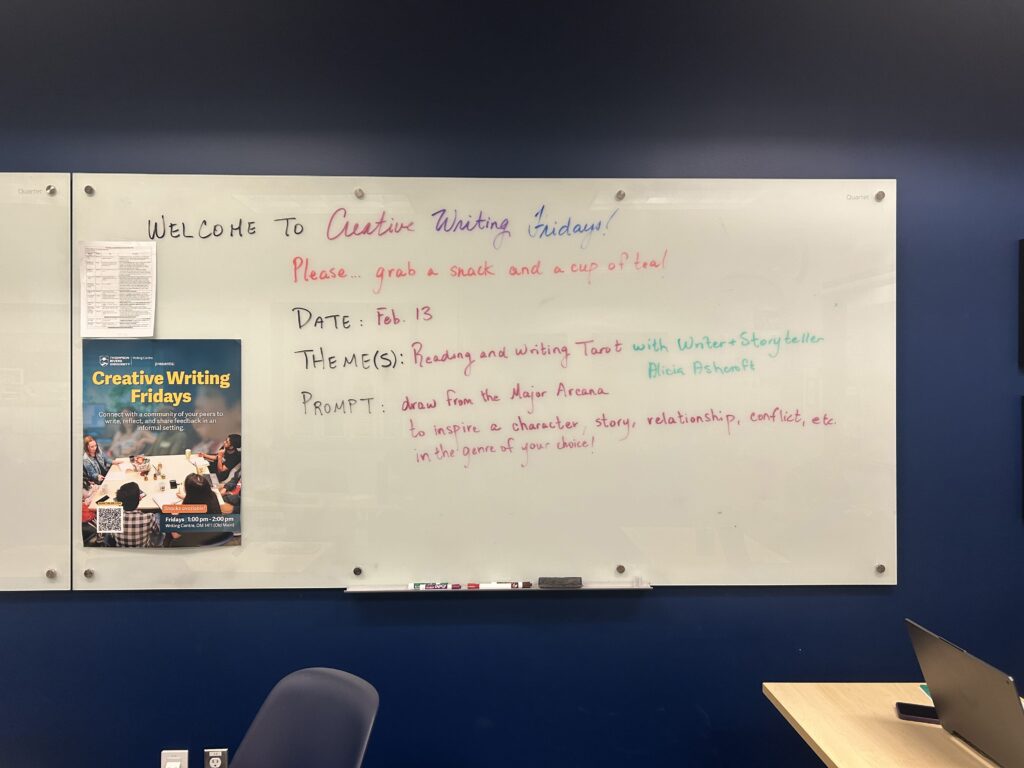 Quartet
Quartet
WELCOME TO Creative Writing Fridays!
Please... grab a snack and a cup of tea!
DATE: Feb. 13
THEME(S): Reading and Writing Tarot with Writer + Storyteller
Alicia Ashcroft
PROMPT: draw from the Major Arcana
to inspire a character, story, relationship, conflict, etc.
in the genre of your choice!
THOMPSON RIVERS UNIVERSITY | Writing Centre
presents:
Creative Writing
Fridays
Connect with a community of your peers to
write, reflect, and share feedback in an
informal setting.
Snacks available!
Fridays 1:00 pm - 2:00 pm
Writing Centre, OM 1411 (Old Main)